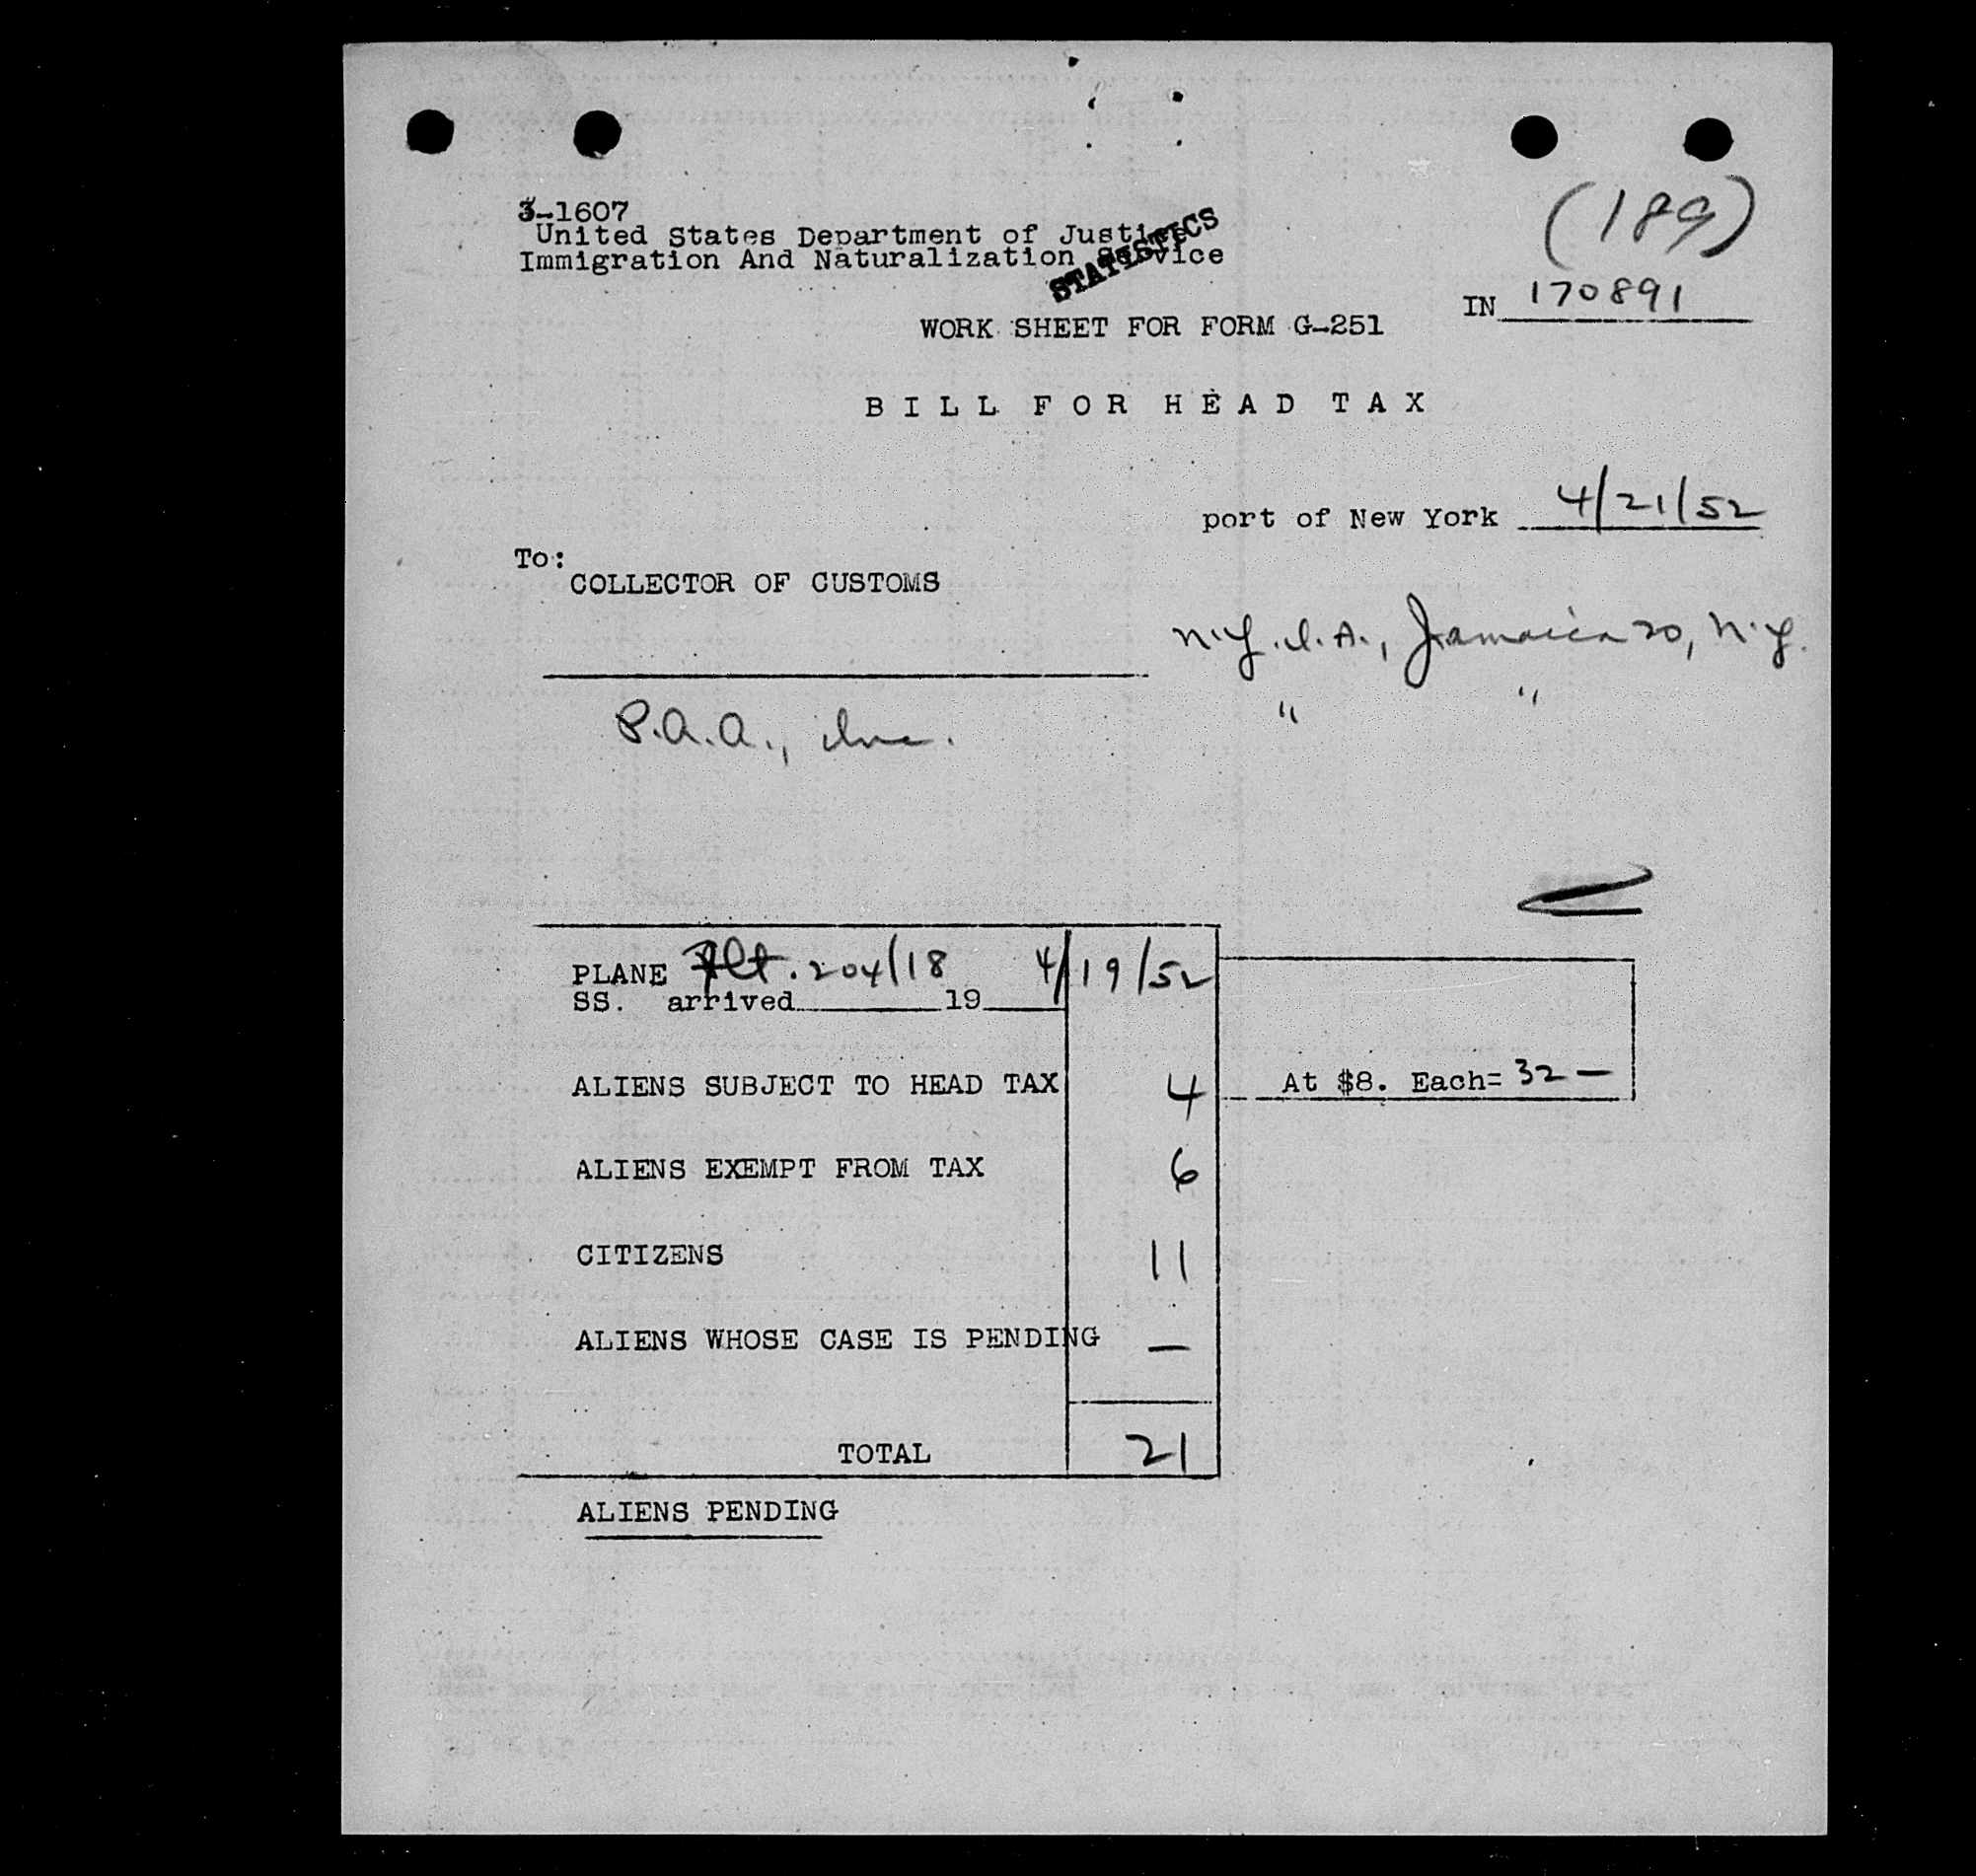 (189)
3-1607
United States Department of Justice
Immigration And Naturalization Service
STATISTICS
IN 170891
WORK SHEET FOR FORM G-251
BILL FOR HEAD TAX
port of New York 4/21/52
To:
COLLECTOR OF CUSTOMS
N.Y.I.A., Jamaica 20, N.Y.
P.A.A., Inc. " "
PLANE Flt. 204/18 4/19/52
SS. arrived 19
ALIENS SUBJECT TO HEAD TAX 4 At $8. Each= 32 —
ALIENS EXEMPT FROM TAX 6
CITIZENS 11
ALIENS WHOSE CASE IS PENDING —
TOTAL 21
ALIENS PENDING